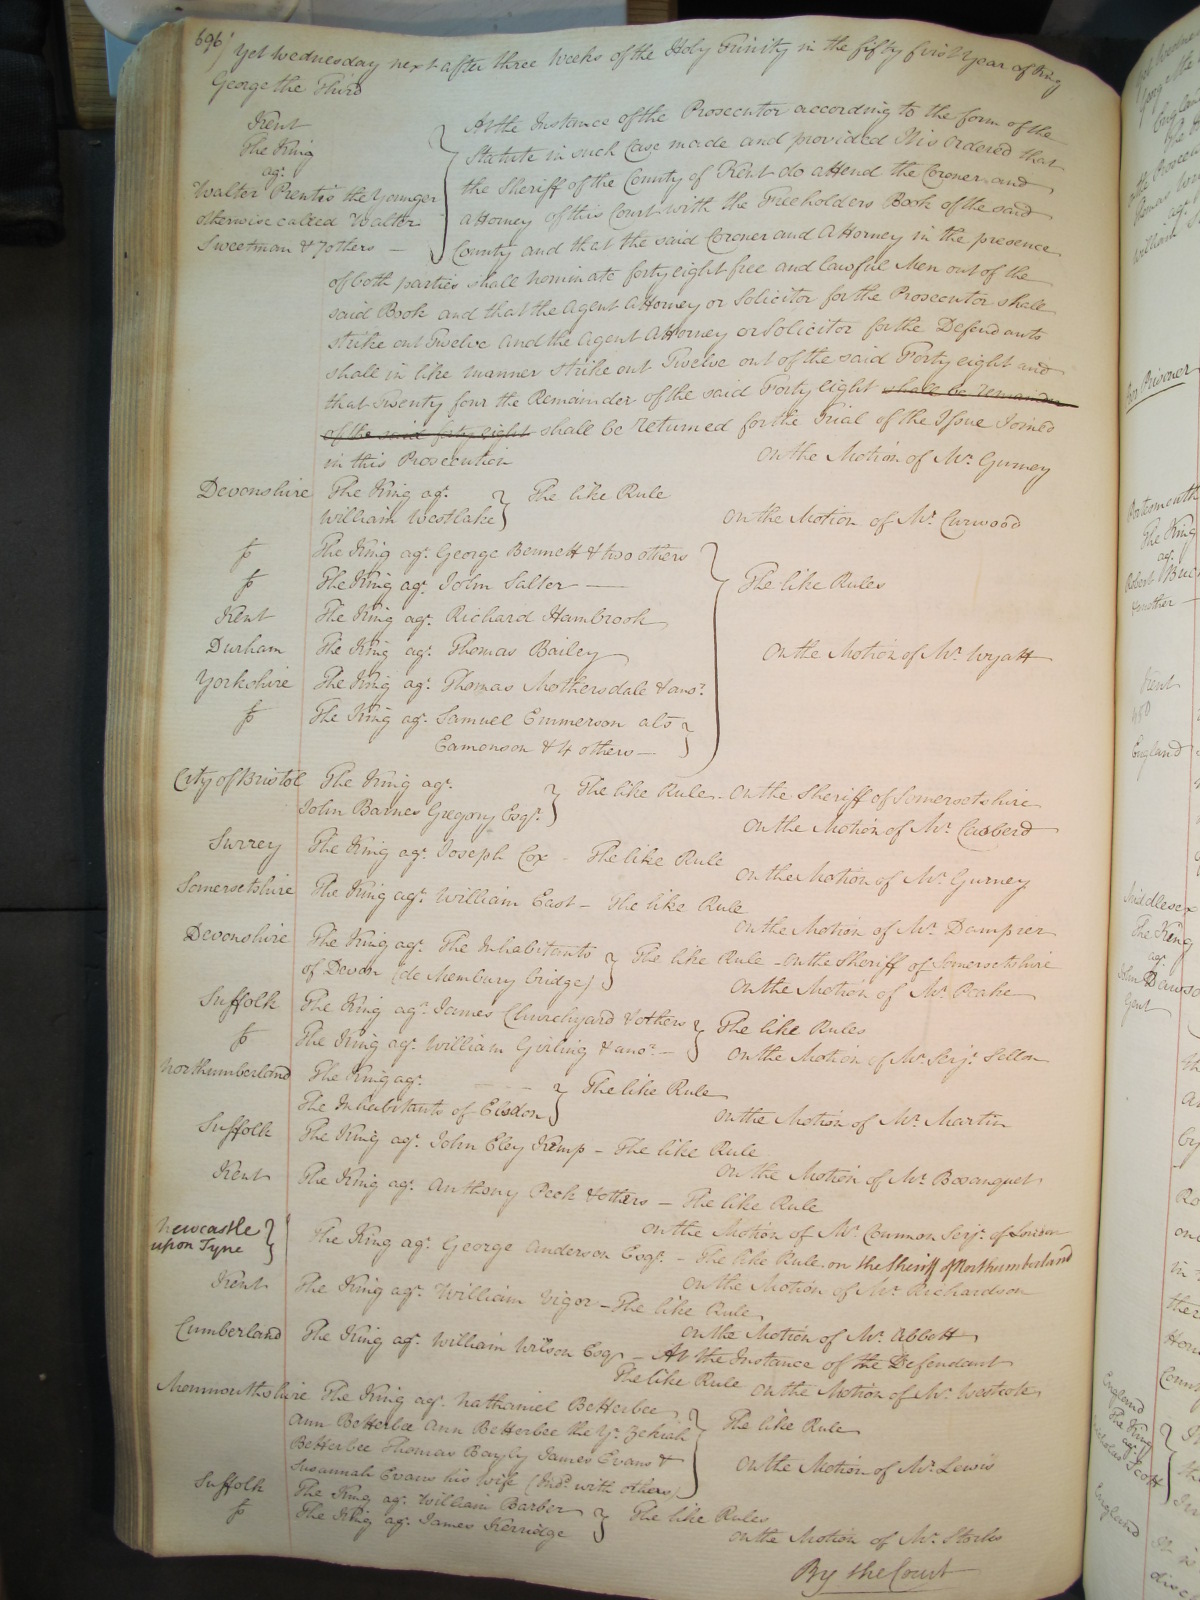 696
Yet Wednesday next after three Weeks of the Holy Trinity in the fifty first Year of King
George the Third
Kent
The King
agt.
Walter Prentis the Younger
otherwise called Walter
Sweetman & 7 others
At the Instance of the Prosecutor according to the form of the
Statute in such Case made and provided It is Ordered that
the Sheriff of the County of Kent do attend the Coroner and
attorney of this Court with the Freeholders Book of the said
County and that the said Coroner and Attorney in the presence
of both parties shall nominate forty eight free and lawful Men out of the
said Book and that the Agent Attorney or Solicitor for the Prosecutor shall
strike out Twelve and the Agent Attorney or Solicitor for the Defendants
shall in like manner strike out Twelve out of the said Forty eight and
that Twenty four the Remainder of the said Forty eight shall be remainder
of the said forty eight shall be returned for the Trial of the Issue Joined
in this Prosecution
On the Motion of Mr. Gurney
Devonshire The King agt. William Westlake } The like Rule
On the Motion of Mr. Curwood
fo The King agt. George Bennett & two others
fo The King agt. John Salter —
Kent The King agt. Richard Hambrook
Durham The King agt. Thomas Bailey
Yorkshire The King agt. Thomas Mothersdale & anor.
fo The King agt. Samuel Emmerson als
Eamonson & 4 others —
The like Rules
On the Motion of Mr. Wyatt
City of Bristol The King agt.
John Barnes Gregory Esqr. } The like Rule - On the Sheriff of Somersetshire
On the Motion of Mr. Casberd
Surrey The King agt. Joseph Cox - The like Rule
On the Motion of Mr. Gurney
Somersetshire The King agt. William East - The like Rule
On the Motion of Mr. Dampier
Devonshire The King agt. The Inhabitants
of Devon (de Membury bridge) } The like Rule - On the Sheriff of Somersetshire
On the Motion of Mr. Peake
Suffolk The King agt. James Churchyard & others
fo The King agt. William Girling & anor. — } The like Rules
On the Motion of Mr. Serjt. Sellon
Northumberland The King agt.
The Inhabitants of Elsdon } The like Rule
On the Motion of Mr. Martin
Suffolk The King agt. John Eley Kemp - The like Rule
On the Motion of Mr. Bosanquet
Kent The King agt. Anthony Peck & others — The like Rule
On the Motion of Mr. Common Serjt. of London
Newcastle
upon Tyne } The King agt. George Anderson Esqr. - The like Rule on the Sheriff of Northumberland
On the Motion of Mr. Richardson
Kent The King agt. William Vigor - The like Rule
On the Motion of Mr. Abbott
Cumberland The King agt. William Wilson Esqr - At the Instance of the Defendant
The like Rule On the Motion of Mr. Westcote
Monmouthshire The King agt. Nathaniel Betterbee
Ann Betterbee Ann Betterbee the Yr. Zekiah
Betterbee Thomas Bayly James Evans &
Susannah Evans his wife (Ind. with others) } The like Rule
On the Motion of Mr. Lewis
Suffolk The King agt. William Barber
fo The King agt. James Kerridge } The like Rules
On the Motion of Mr. Storks
By the Court
Prisoner
Portsmouth
The King
agt.
Robert
& another
Kent
England
Middlesex
The King
agt.
John Dawson
Gent
England
The King
agt.
Nicholas Scott
England